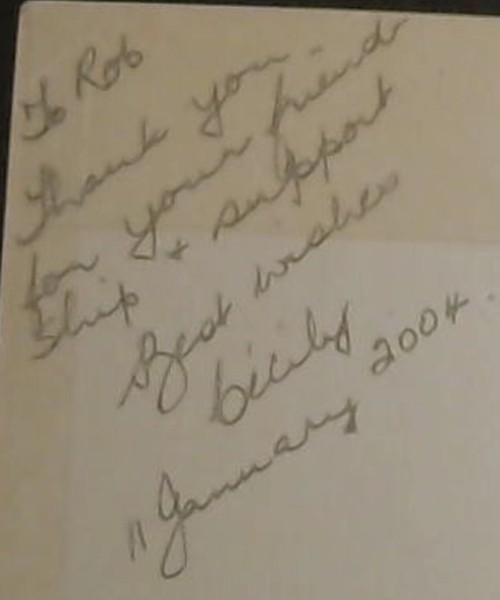 To Rob
Thank you
for your friend
ship + support
Best wishes
Cicily
11 January 2004.